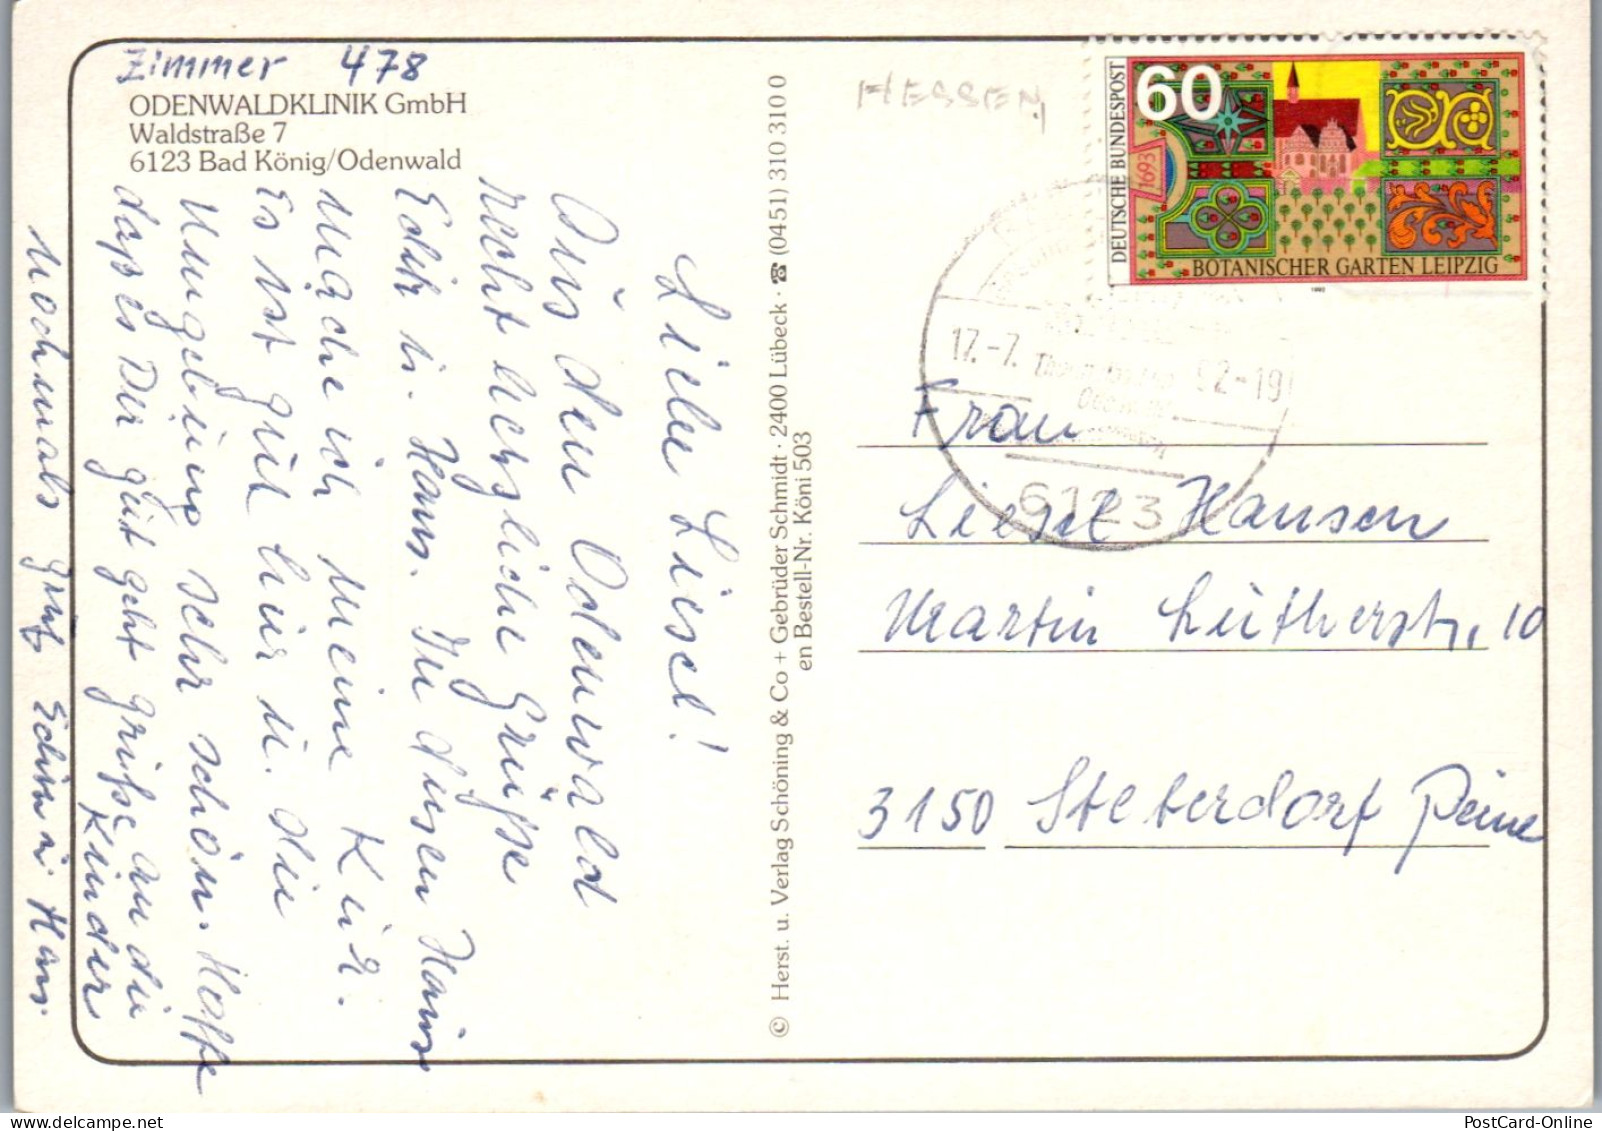 Zimmer 478
ODENWALDKLINIK GmbH
Waldstraße 7
6123 Bad König/Odenwald
Liebe Liesel!
Aus dem Odenwald
recht herzliche Grüße
Edith u. Hans. In diesem Haus
mache ich meine Kur.
Es ist gut hier u. die
Umgebung sehr schön. Hoffe
daß es Dir gut geht Grüße an die
Kinder
Nochmals Gruß Edith u. Hans.
© Herst. u. Verlag Schöning & Co + Gebrüder Schmidt · 2400 Lübeck · ☎ (0451) 310 310 0
en Bestell-Nr. Köni 503
HESSEN
DEUTSCHE BUNDESPOST
60
1693
BOTANISCHER GARTEN LEIPZIG
1992
17.-7. 92-19
6123
Frau
Liesel Hansen
Martin Lutherstr. 10
3150 Stederdorf Peine
PostCard-Online